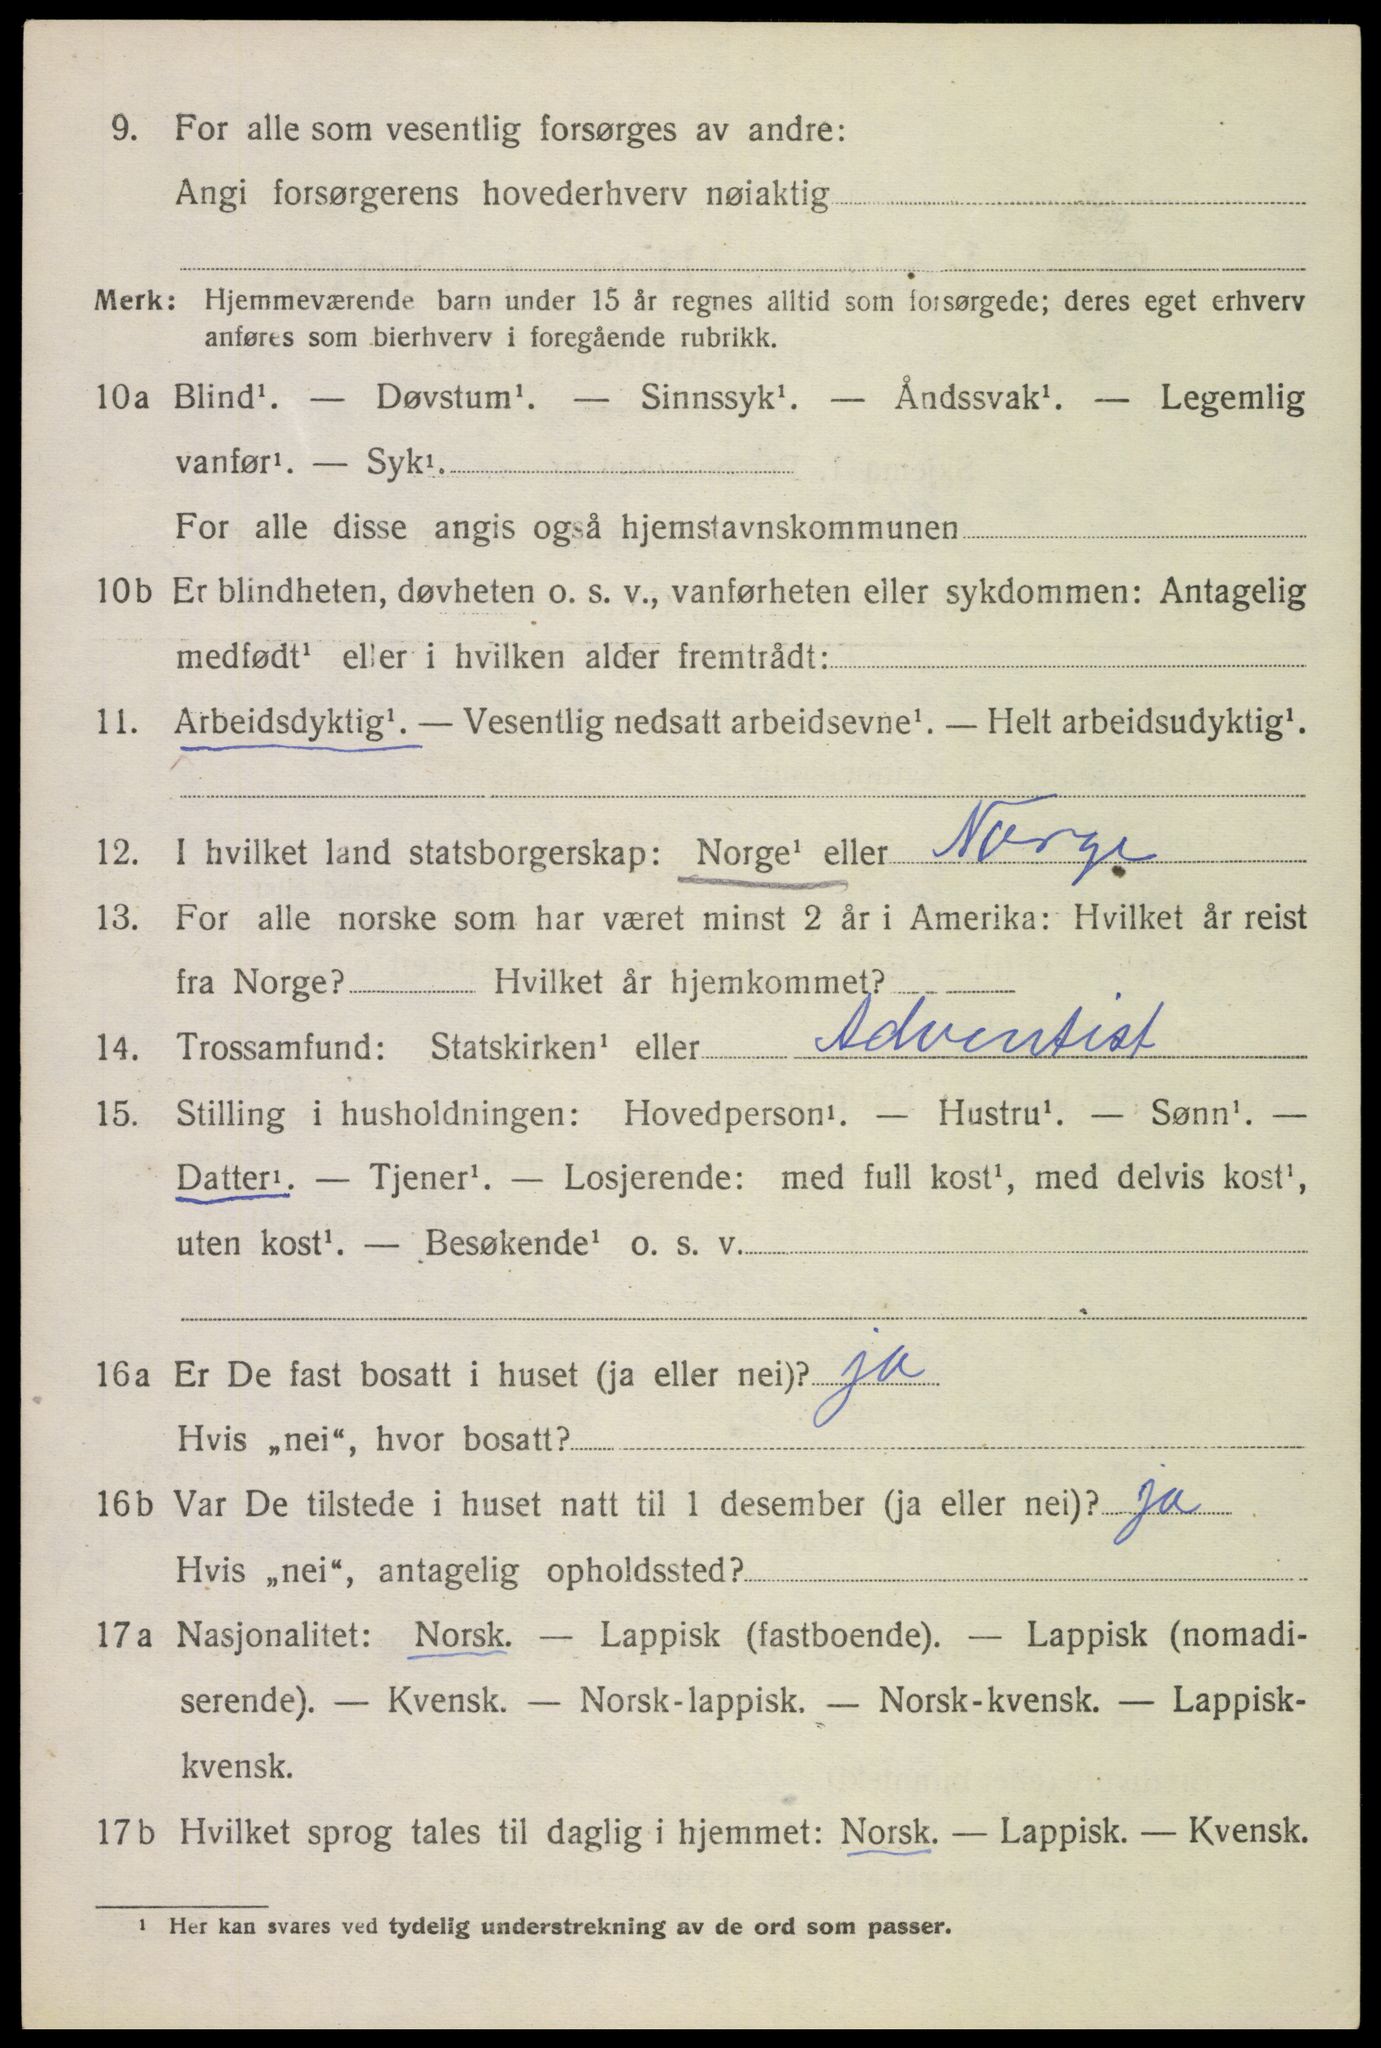 9. For alle som vesentlig forsørges av andre:
Angi forsørgerens hovederhverv nøiaktig
Merk: Hjemmeværende barn under 15 år regnes alltid som forsørgede; deres eget erhverv
anføres som bierhverv i foregående rubrikk.
10a Blind¹. — Døvstum¹. — Sinnssyk¹. — Åndssvak¹. — Legemlig
vanfør¹. — Syk¹.
For alle disse angis også hjemstavnskommunen
10b Er blindheten, døvheten o. s. v., vanførheten eller sykdommen: Antagelig
medfødt¹ eller i hvilken alder fremtrådt:
11. Arbeidsdyktig¹. — Vesentlig nedsatt arbeidsevne¹. — Helt arbeidsudyktig¹.
12. I hvilket land statsborgerskap: Norge¹ eller Norge
13. For alle norske som har været minst 2 år i Amerika: Hvilket år reist
fra Norge? Hvilket år hjemkommet?
14. Trossamfund: Statskirken¹ eller Adventist
15. Stilling i husholdningen: Hovedperson¹. — Hustru¹. — Sønn¹. —
Datter¹. — Tjener¹. — Losjerende: med full kost¹, med delvis kost¹,
uten kost¹. — Besøkende¹ o. s. v.
16a Er De fast bosatt i huset (ja eller nei)? ja
Hvis „nei“, hvor bosatt?
16b Var De tilstede i huset natt til 1 desember (ja eller nei)? ja
Hvis „nei“, antagelig opholdssted?
17a Nasjonalitet: Norsk. — Lappisk (fastboende). — Lappisk (nomadi-
serende). — Kvensk. — Norsk-lappisk. — Norsk-kvensk. — Lappisk-
kvensk.
17b Hvilket sprog tales til daglig i hjemmet: Norsk. — Lappisk. — Kvensk.
¹ Her kan svares ved tydelig understrekning av de ord som passer.